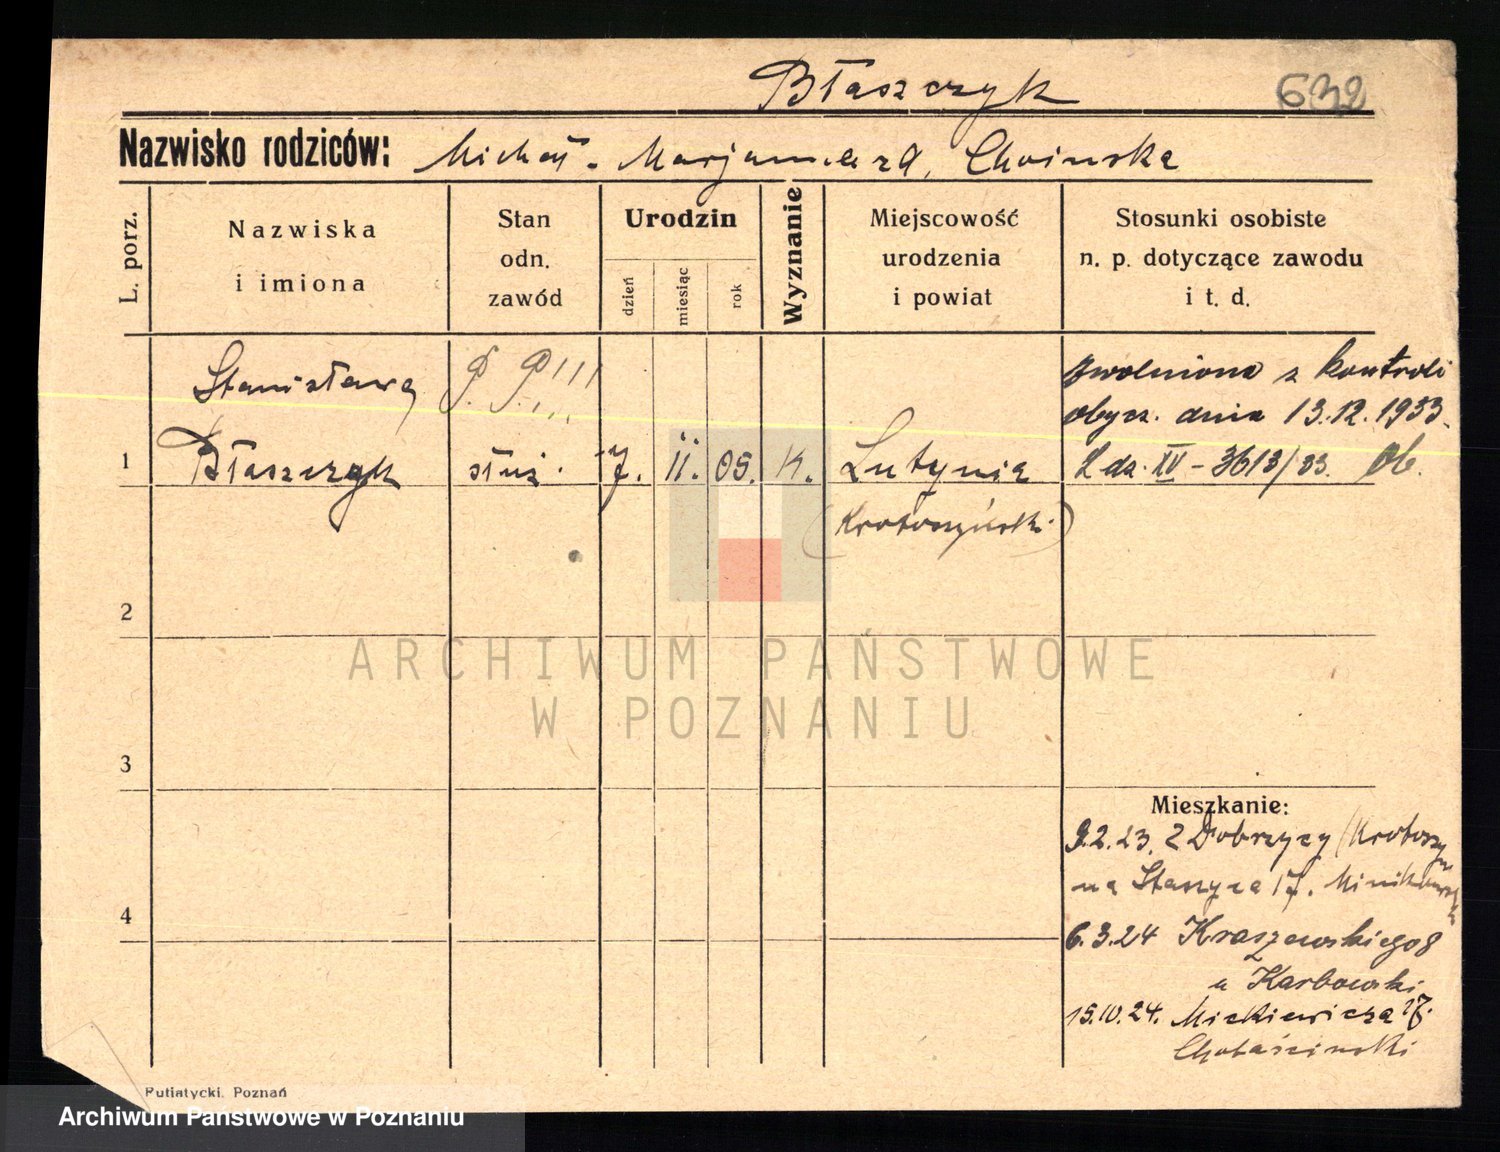 Błaszczyk
632
Nazwisko rodziców: Michał - Marjanna zd. Choinska
L. porz.
Nazwiska
i imiona
Stan
odn.
zawód
Urodzin
dzień
miesiąc
rok
Wyznanie
Miejscowość
urodzenia
i powiat
Stosunki osobiste
n. p. dotyczące zawodu
i t. d.
Stanisława
zwolniona z kontroli
obycz. dnia 13.12.1933.
1 Błaszczyk służ. 7. 11. 05. K. Lutynia
L dz. IV - 3613/33.
(Krotoszyński)
2
3
4
Mieszkanie:
9.2.23. z Dobrzycy (Krotoszyn
na Staszyca 17.
6.3.24 Kraszewskiego 8
u Karbowski
15.IV.24. Mickiewicza 27.
Putiatycki, Poznań
ARCHIWUM PAŃSTWOWE
W POZNANIU
Archiwum Państwowe w Poznaniu